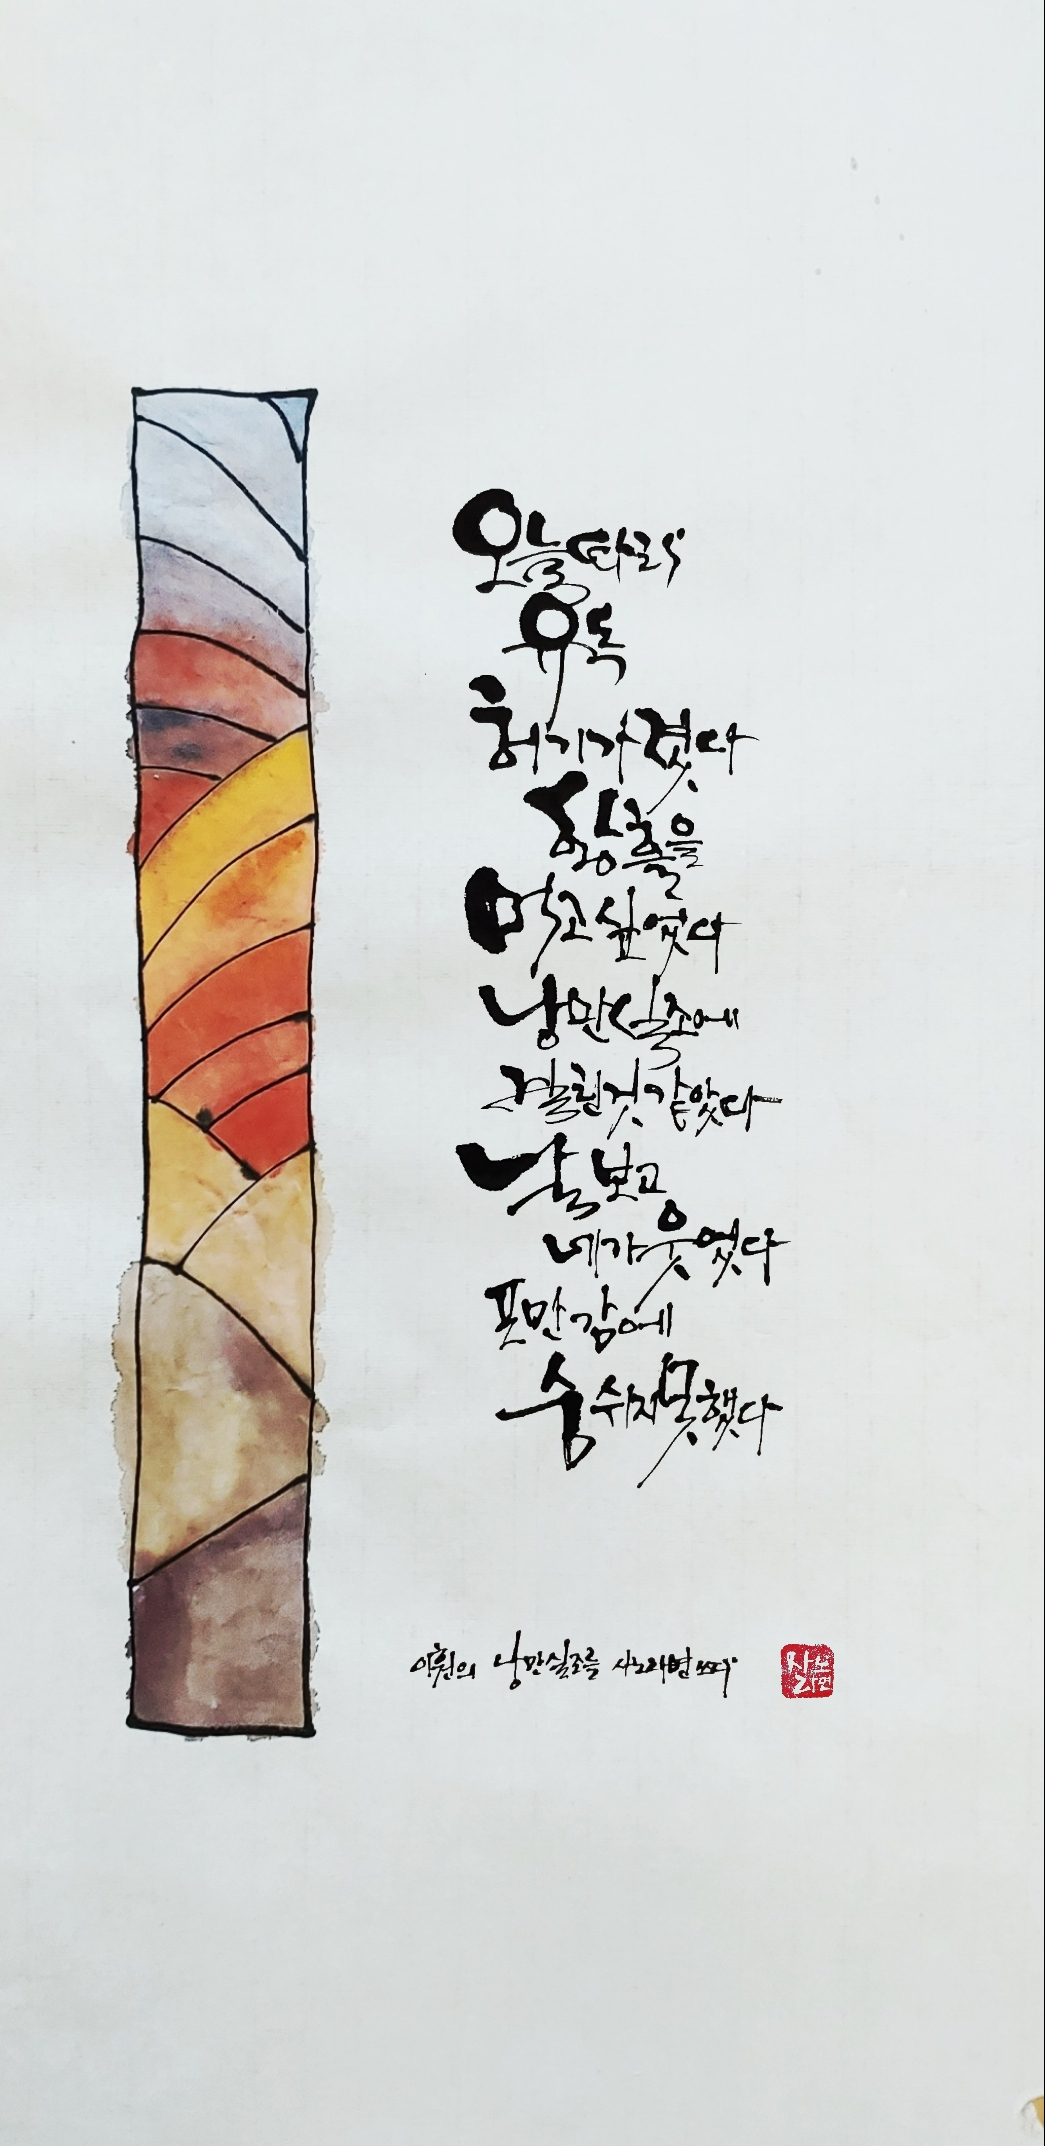 오늘따라
유독
허기가 졌다
황혼을
먹고 싶었다
낭만 실조에
걸린 것 같았다
날 보고
네가 웃었다
포만감에
숨 쉬지 못했다
이훤의 낭만실조를